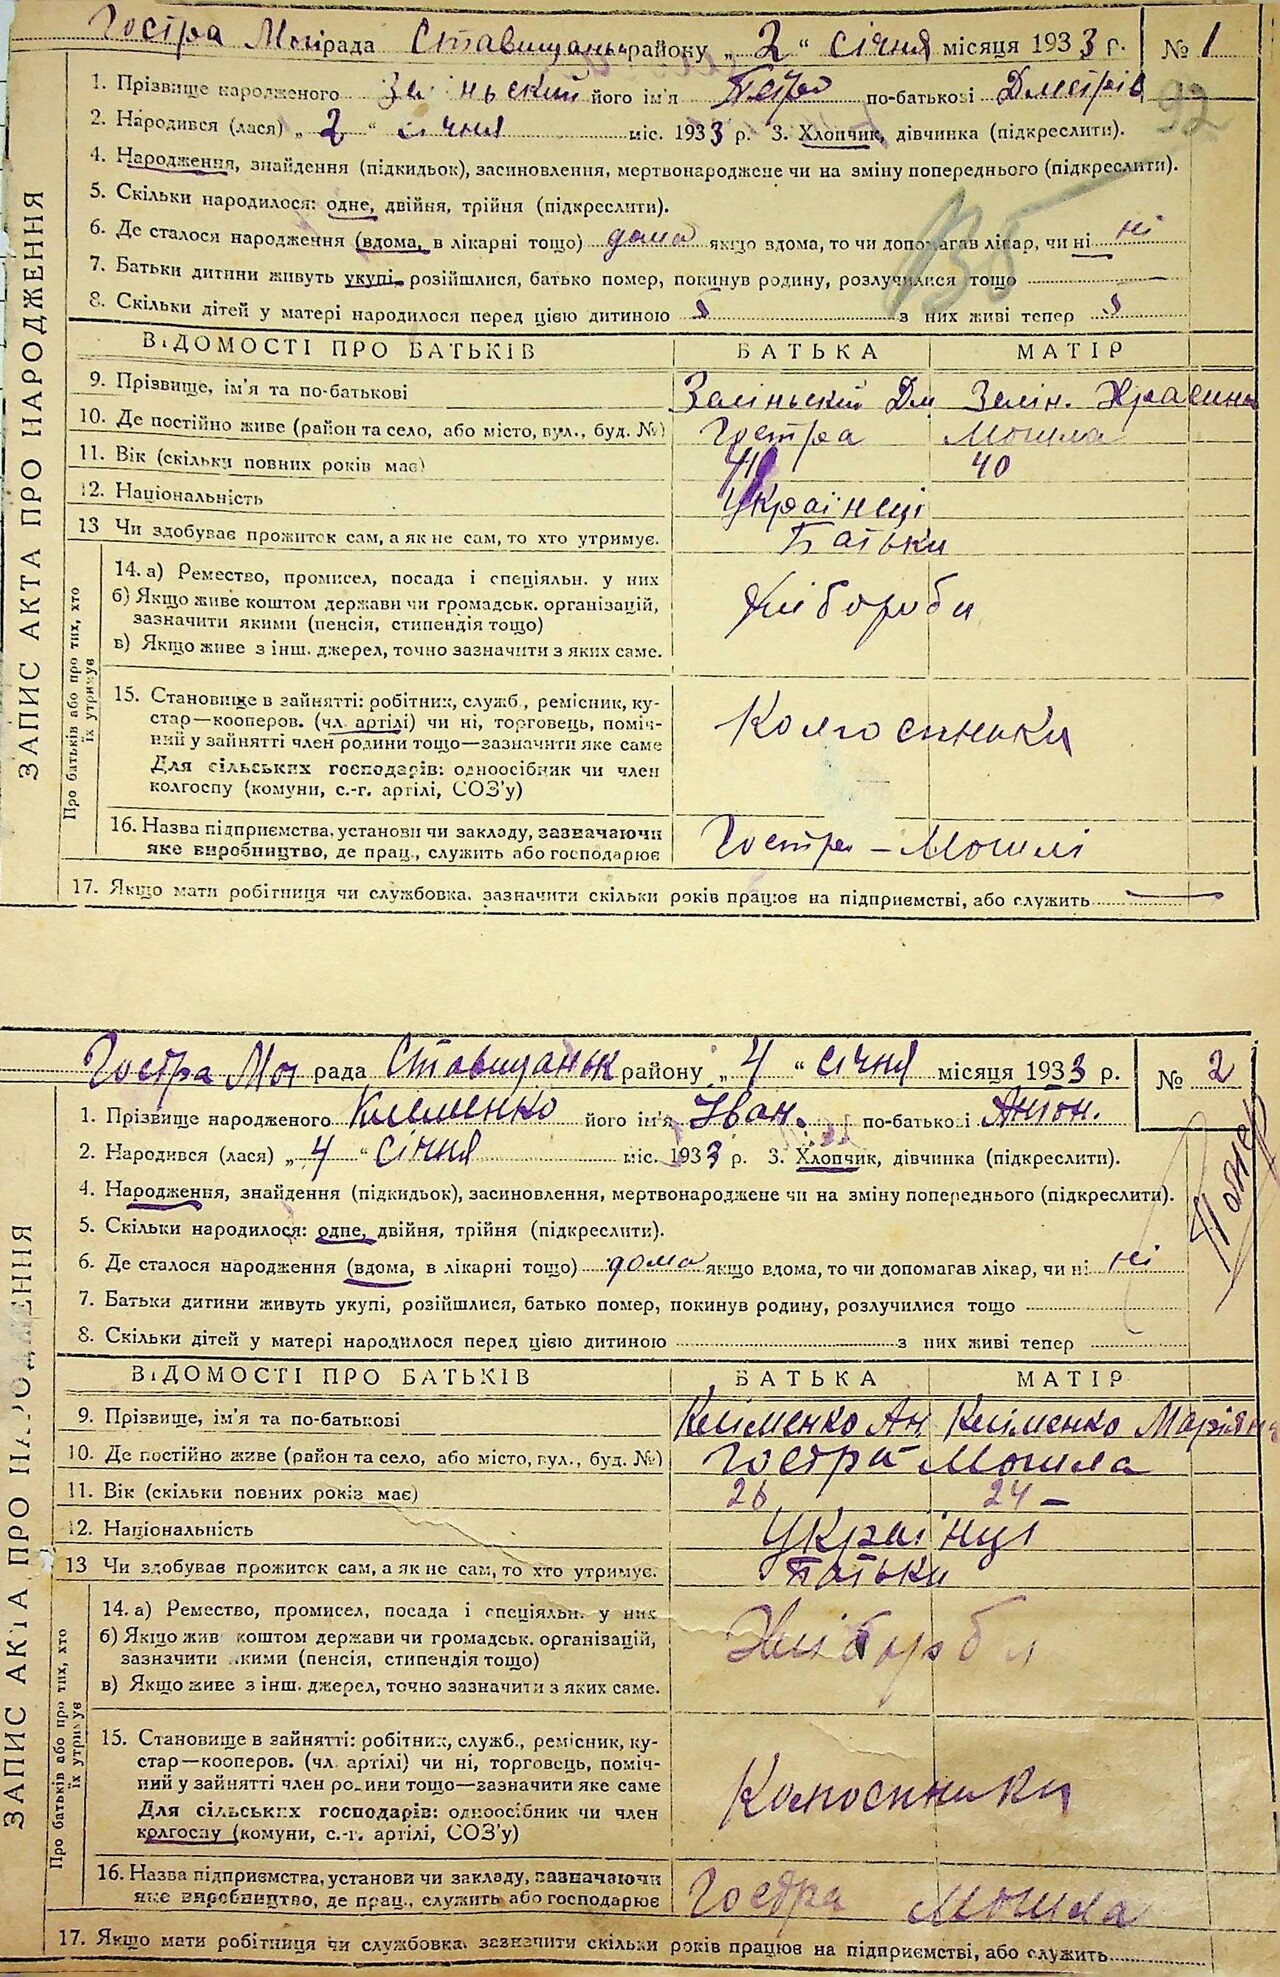 Гостра Мог рада Ставищаньк району „ 2 “ січня місяця 1933 р. № 1
1. Прізвище народженого Зеліньский його ім'я Петро по-батькові Дметрів
92
2. Народився (лася) „ 2 “ січня міс. 1933 р. 3. Хлопчик, дівчинка (підкреслити).
4. Народження, знайдення (підкидьок), засиновлення, мертвонароджене чи на зміну попереднього (підкреслити).
5. Скільки народилося: одне, двійня, трійня (підкреслити).
6. Де сталося народження (вдома, в лікарні тощо) дома якщо вдома, то чи допомагав лікар, чи ні ні
7. Батьки дитини живуть укупі, розійшлися, батько помер, покинув родину, розлучилися тощо
8. Скільки дітей у матері народилося перед цією дитиною з них живі тепер
ЗАПИС АКТА ПРО НАРОДЖЕННЯ
ВІДОМОСТІ ПРО БАТЬКІВ БАТЬКА МАТІР
9. Прізвище, ім'я та по-батькові Зеліньский Дм Зелін.
10. Де постійно живе (район та село, або місто, вул., буд. №) Гостра Могила
11. Вік (скільки повних років має) 40
12. Національність Українеці
13 Чи здобуває прожиток сам, а як не сам, то хто утримує. Батьки
Про батьків або про тих, хто їх утримує
14. а) Ремество, промисел, посада і спеціяльн. у них
б) Якщо живе коштом держави чи громадськ. організацій,
зазначити якими (пенсія, стипендія тощо)
в) Якщо живе з інш. джерел, точно зазначити з яких саме.
15. Становище в зайнятті: робітник, служб., ремісник, ку-
стар—кооперов. (чл. артілі) чи ні, торговець, поміч-
ний у зайнятті член родини тощо—зазначити яке саме
Для сільських господарів: одноосібник чи член
колгоспу (комуни, с.-г. артілі, СОЗ'у)
16. Назва підприємства, установи чи закладу, зазначаючи
яке виробництво, де прац., служить або господарює Гостра – Могилі
17. Якщо мати робітниця чи службовка, зазначити скільки років працює на підприємстві, або служить
Гостра Мог рада Ставищаньк району „ 4 “ січня місяця 1933 р. № 2
1. Прізвище народженого Клеменко його ім'я Іван. по-батькові Антон.
2. Народився (лася) „ 4 “ січня міс. 1933 р. 3. Хлопчик, дівчинка (підкреслити).
4. Народження, знайдення (підкидьок), засиновлення, мертвонароджене чи на зміну попереднього (підкреслити).
5. Скільки народилося: одне, двійня, трійня (підкреслити).
6. Де сталося народження (вдома, в лікарні тощо) дома якщо вдома, то чи допомагав лікар, чи ні ні
7. Батьки дитини живуть укупі, розійшлися, батько помер, покинув родину, розлучилися тощо
8. Скільки дітей у матері народилося перед цією дитиною з них живі тепер
Помер
ЗАПИС АКТА ПРО НАРОДЖЕННЯ
ВІДОМОСТІ ПРО БАТЬКІВ БАТЬКА МАТІР
9. Прізвище, ім'я та по-батькові Кліменко Ан Кліменко Маріяна
10. Де постійно живе (район та село, або місто, вул., буд. №) Гостра Могила
11. Вік (скільки повних років має) 26 24 –
12. Національність Українці
13 Чи здобуває прожиток сам, а як не сам, то хто утримує. Батьки
Про батьків або про тих, хто їх утримує
14. а) Ремество, промисел, посада і спеціяльн. у них
б) Якщо жив коштом держави чи громадськ. організацій,
зазначити якими (пенсія, стипендія тощо)
в) Якщо живе з інш. джерел, точно зазначити з яких саме.
15. Становище в зайнятті: робітник, служб., ремісник, ку-
стар—кооперов. (чл. артілі) чи ні, торговець, поміч-
ний у зайнятті член родини тощо—зазначити яке саме
Для сільських господарів: одноосібник чи член
колгоспу (комуни, с.-г. артілі, СОЗ'у)
16. Назва підприємства, установи чи закладу, зазначаючи
яке виробництво, де прац., служить або господарює Гостра Могила
17. Якщо мати робітниця чи службовка, зазначити скільки років працює на підприємстві, або служить